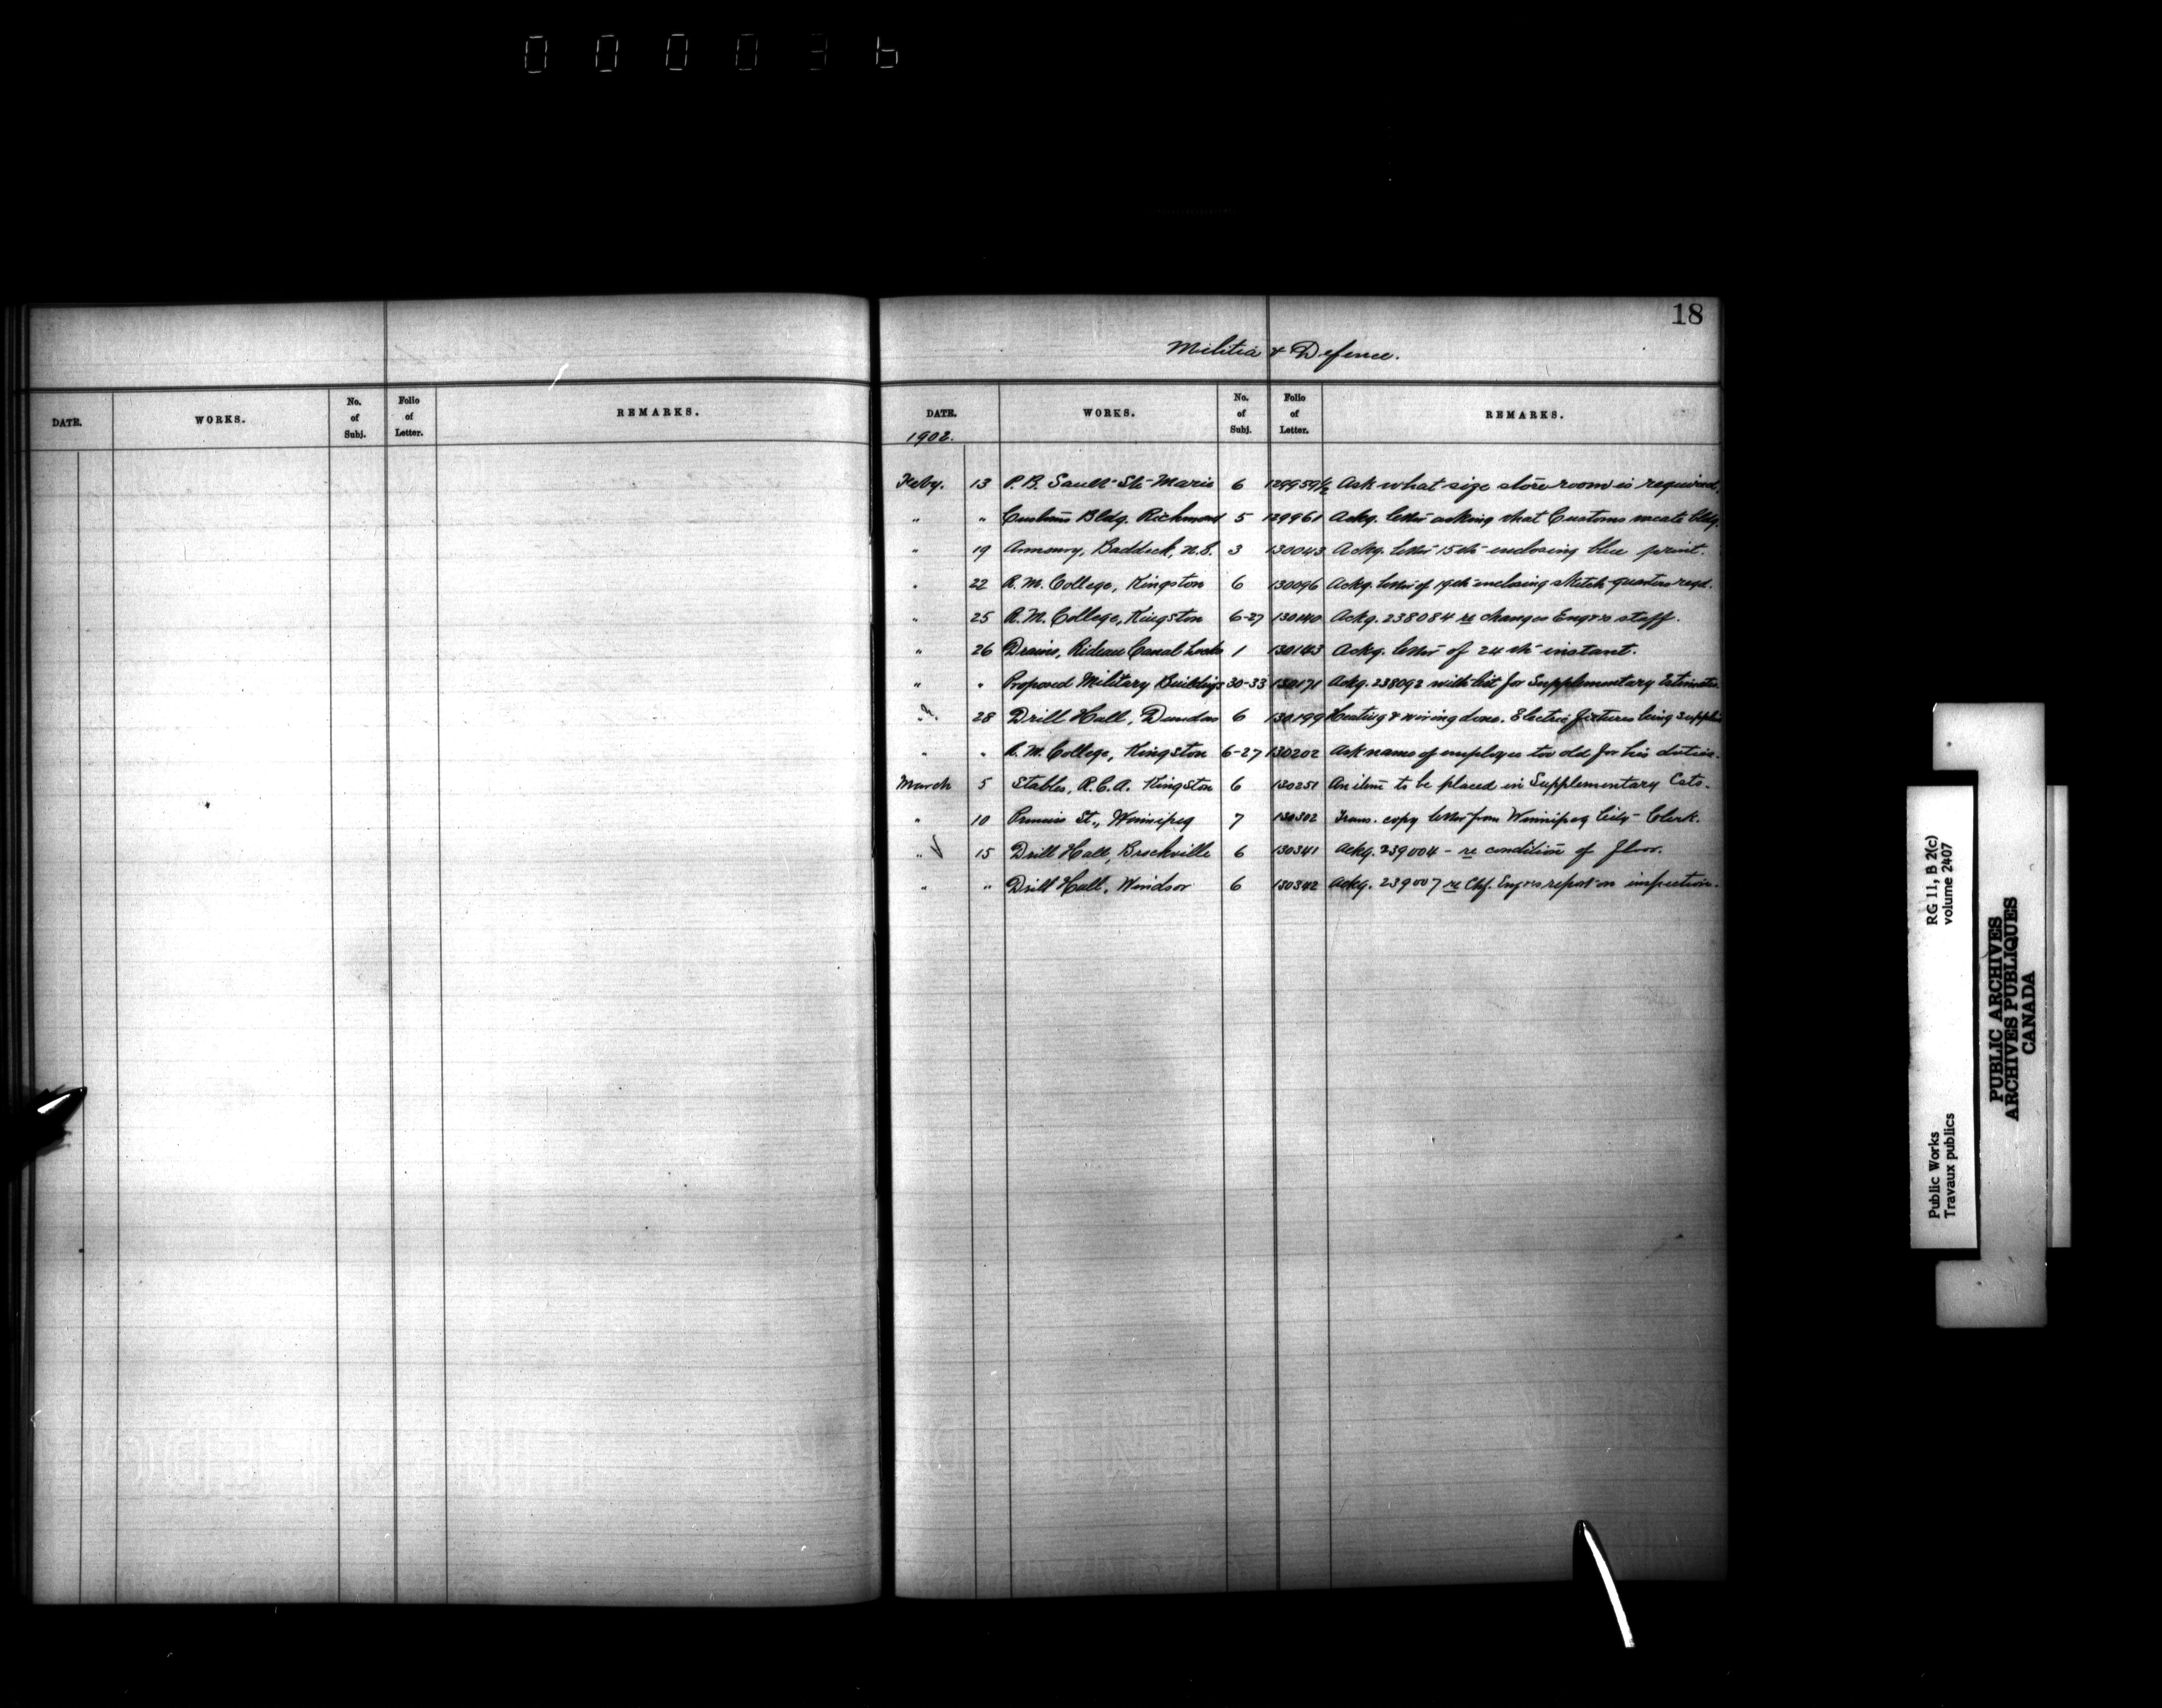 000036
18
Militia & Defence.
DATE. WORKS. No. of Subj. Folio of Letter. REMARKS.
DATE. WORKS. No. of Subj. Folio of Letter. REMARKS.
1902.
Feby. 13 P.B. Sault Ste Marie 6 129959½ Ask what size store room is required.
" " Customs Bldg. Richmond 5 129961 Ackg. letter asking that Customs vacate bldg.
" 19 Armoury, Baddeck, N.S. 3 130043 Ackg. letter 15th enclosing blue print.
" 22 R.M. College, Kingston 6 130096 Ackg. letter of 19th enclosing sketch quarters reqd.
" 25 R.M. College, Kingston 6-27 130140 Ackg. 238084 re changes Engrs staff.
" 26 Drains, Rideau Canal Locks 1 130143 Ackg. letter of 24th instant.
" " Proposed Military Buildings 30-33 130171 Ackg. 238092 with list for Supplementary Estimates.
" 28 Drill Hall, Dundas 6 130199 Heating & wiring done. Electric fixtures being supplied
" " R.M. College, Kingston 6-27 130202 Ask name of employee too old for his duties.
March 5 Stables, R.C.A. Kingston 6 130251 An item to be placed in Supplementary Ests.
" 10 St., Winnipeg 7 130302 Trans. copy letter from Winnipeg City Clerk.
" 15 Drill Hall, Brockville 6 130341 Ackg. 239004 - re condition of floor.
" " Drill Hall, Windsor 6 130342 Ackg. 239007 re Chf. Engrs report on inspection.
RG 11, B 2(c)
volume 2407
Public Works
Travaux publics
PUBLIC ARCHIVES
ARCHIVES PUBLIQUES
CANADA